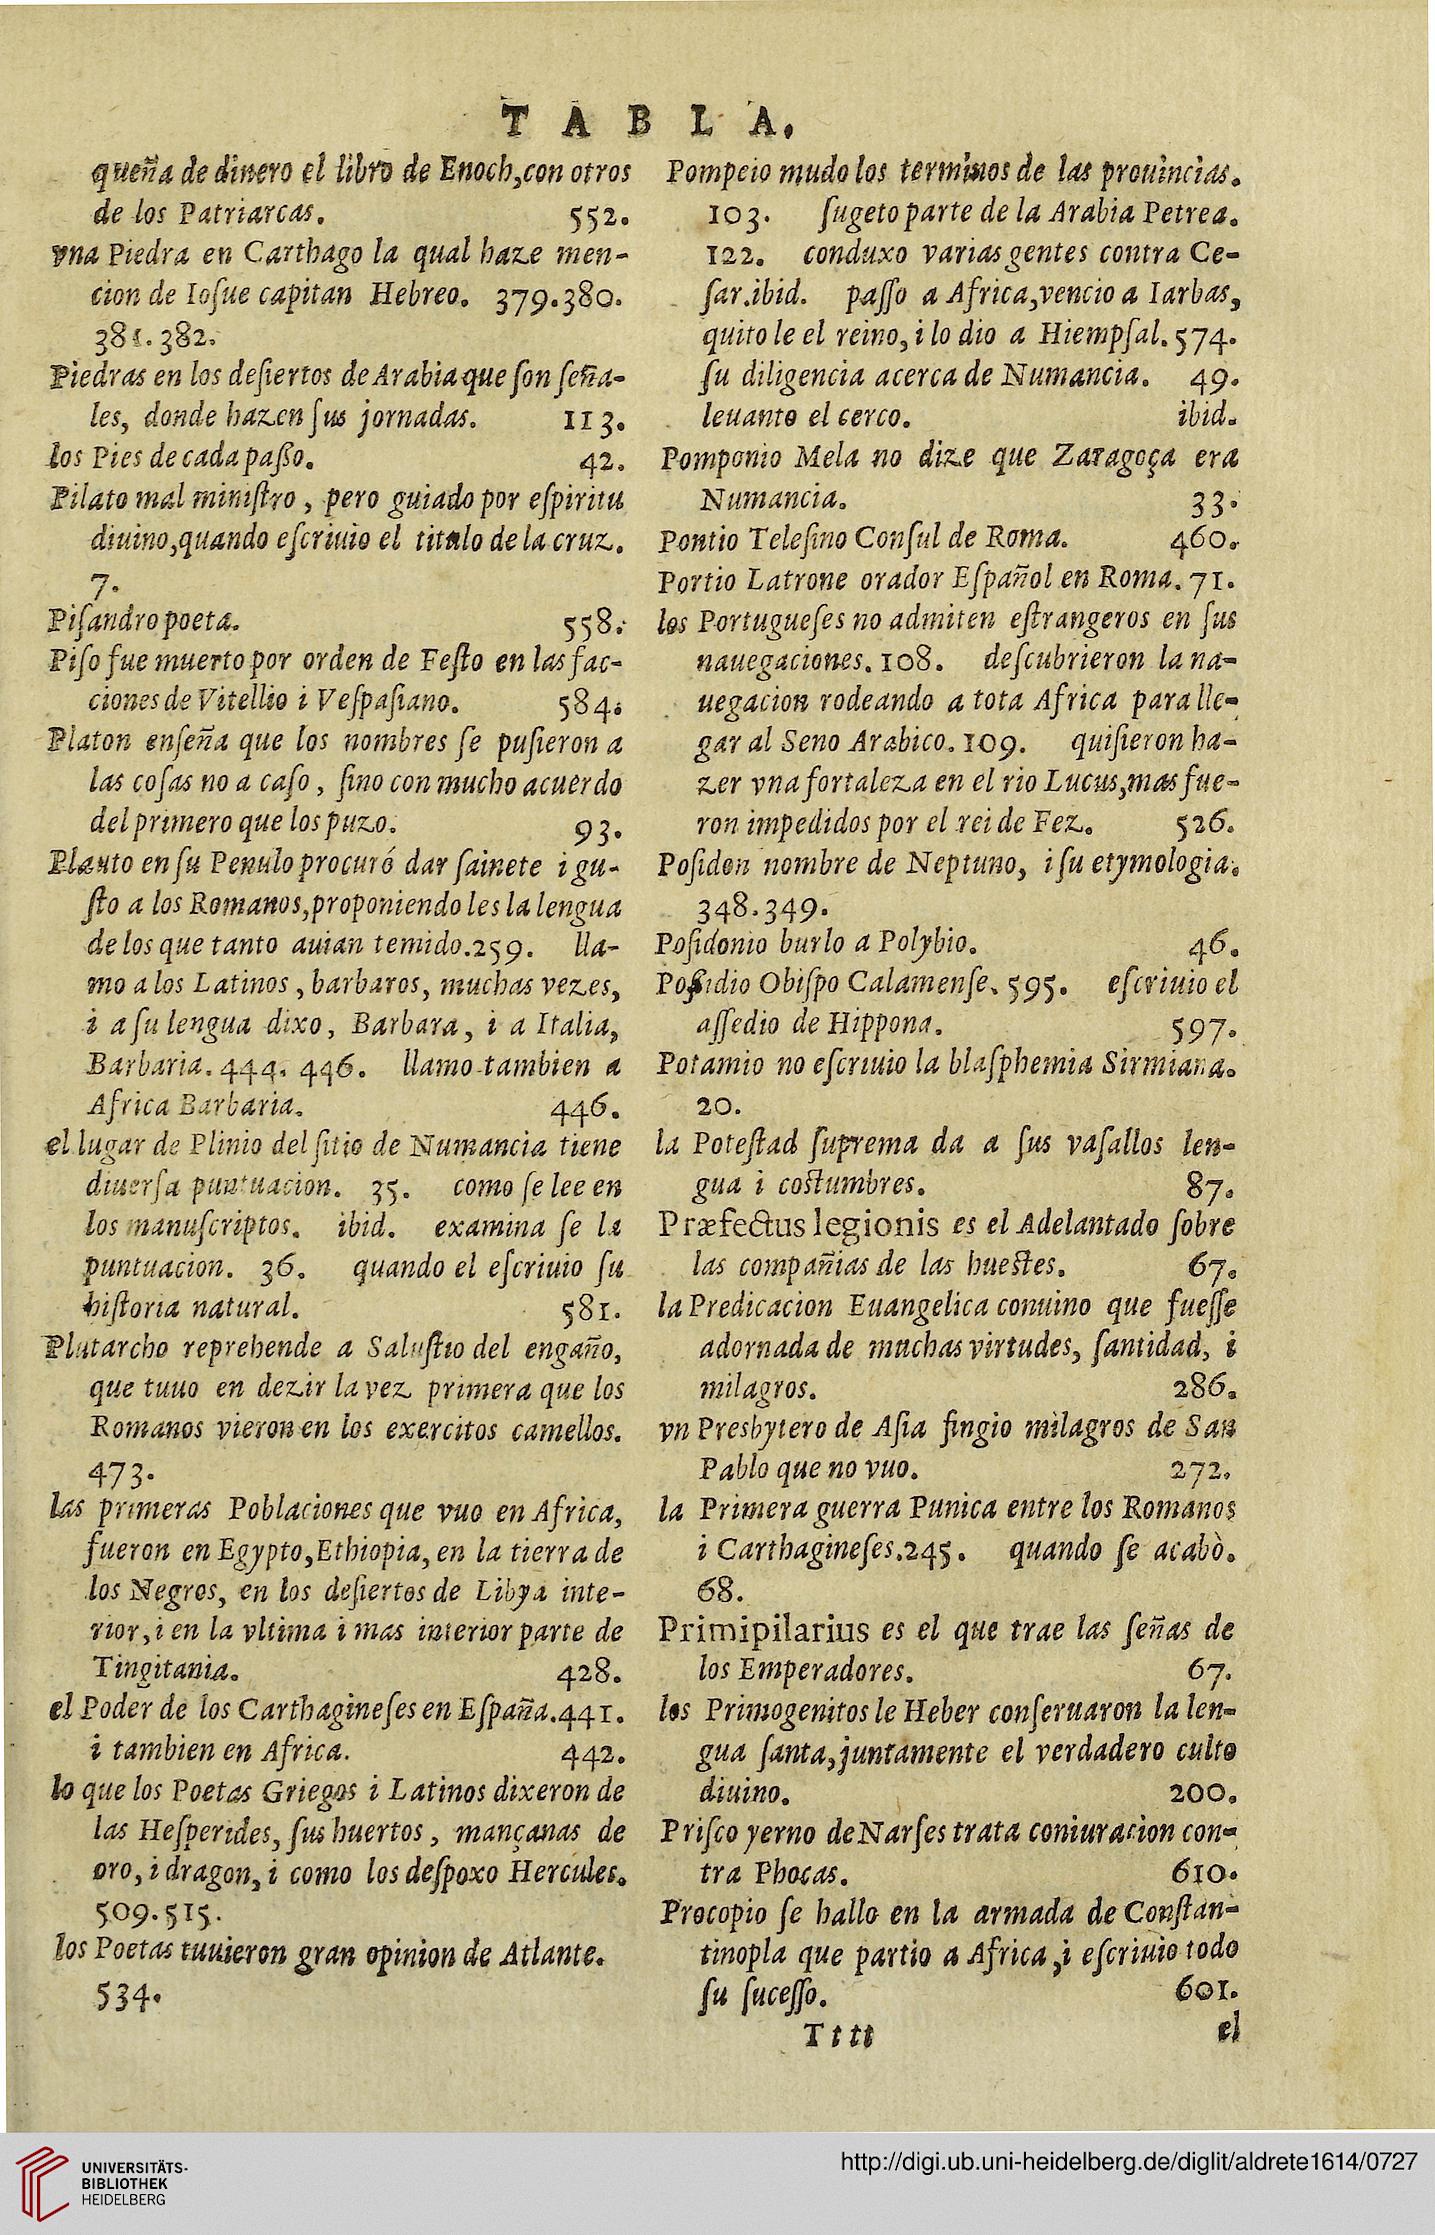 TABLA.
queña de dinero el libro de Enoch,con otros
de los Patriarcas. 552.
vna Piedra en Carthago la qual haze men-
cion de Ioſue capitan Hebreo. 379.380.
381.382.
Piedras en los deſiertos de Arabia que ſon ſeña-
les, donde hazen ſus jornadas. 113.
los Pies de cada paßo. 42.
Pilato mal miniſtro, pero guiado por eſpiritu
diuino,quando eſcriuio el titulo de la cruz.
7.
Piſandro poeta. 558.
Piſo fue muerto por orden de Feſto en las fac-
ciones de Vitellio i Veſpaſiano. 584.
Platon enſeña que los nombres ſe puſieron a
las coſas no a caſo, ſino con mucho acuerdo
del primero que los puzo. 93.
Plauto en ſu Penulo procuró dar ſainete i gu-
ſto a los Romanos,proponiendo les la lengua
de los que tanto auian temido.259. lla-
mo a los Latinos, barbaros, muchas vezes,
i a ſu lengua dixo, Barbara, i a Italia,
Barbaria. 444. 446. llamo tambien a
Africa Barbaria. 446.
el lugar de Plinio del ſitio de Numancia tiene
diuerſa puntuacion. 35. como ſe lee en
los manuſcriptos. ibid. examina ſe la
puntuacion. 36. quando el eſcriuio ſu
hiſtoria natural. 581.
Plutarcho reprehende a Saluſtio del engaño,
que tuuo en dezir la vez primera que los
Romanos vieron en los exercitos camellos.
473.
las primeras Poblaciones que vuo en Africa,
fueron en Egypto,Ethiopia, en la tierra de
los Negros, en los deſiertos de Libya inte-
rior, i en la vltima i mas interior parte de
Tingitania. 428.
el Poder de los Carthagineſes en Eſpaña.441.
i tambien en Africa. 442.
lo que los Poetas Griegos i Latinos dixeron de
las Heſperides, ſus huertos, mançanas de
oro, i dragon, i como los deſpoxo Hercules.
509.515.
los Poetas tuuieron gran opinion de Atlante.
534.
Pompeio mudo los terminos de las prouincias.
103. ſugeto parte de la Arabia Petrea.
122. conduxo varias gentes contra Ce-
ſar.ibid. paſſo a Africa,vencio a Iarbas,
quito le el reino, i lo dio a Hiempſal. 574.
ſu diligencia acerca de Numancia. 49.
leuanto el cerco. ibid.
Pomponio Mela no dize que Zaragoça era
Numancia. 33.
Pontio Teleſino Conſul de Roma. 460.
Portio Latrone orador Eſpañol en Roma. 71.
los Portugueſes no admiten eſtrangeros en ſus
nauegaciones. 108. deſcubrieron la na-
uegacion rodeando a tota Africa para lle-
gar al Seno Arabico. 109. quiſieron ha-
zer vna fortaleza en el rio Lucus,mas fue-
ron impedidos por el rei de Fez. 526.
Poſidon nombre de Neptuno, i ſu etymologia.
348.349.
Poſidonio burlo a Polybio. 46.
Poßidio Obiſpo Calamenſe. 595. eſcriuio el
aſſedio de Hippona. 597.
Potamio no eſcriuio la blaſphemia Sirmiana.
20.
la Poteſtad ſuprema da a ſus vaſallos len-
gua i coſtumbres. 87.
Præfectus legionis es el Adelantado ſobre
las compañias de las hueſtes. 67.
la Predicacion Euangelica conuino que fueſſe
adornada de muchas virtudes, ſantidad, i
milagros. 286.
vn Presbytero de Aſia fingio milagros de San
Pablo que no vuo. 272.
la Primera guerra Punica entre los Romanos
i Carthagineſes.245. quando ſe acabò.
68.
Primipilarius es el que trae las ſeñas de
los Emperadores. 67.
los Primogenitos le Heber conſeruaron la len-
gua ſanta,juntamente el verdadero culto
diuino. 200.
Priſco yerno de Narſes trata coniuracion con-
tra Phocas. 610.
Procopio ſe hallo en la armada de Conſtan-
tinopla que partio a Africa, i eſcriuio todo
ſu ſuceſſo. 601.
Tttt el
UNIVERSITÄTS-
BIBLIOTHEK
HEIDELBERG
http://digi.ub.uni-heidelberg.de/diglit/aldrete1614/0727